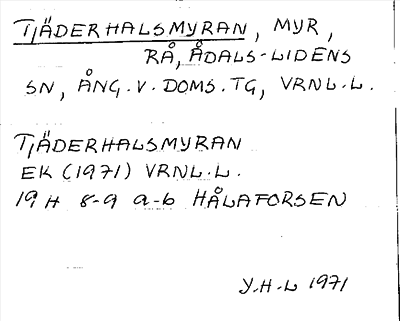 TJÄDERHALSMYRAN, MYR,
RÅ, ÅDALS-LIDENS
SN, ÅNG.V.DOMS.TG, VRNL.L.
TJÄDERHALSMYRAN
EK (1971) VRNL.L.
19H 8-9 a-b HÅLAFORSEN
Y.H-L 1971